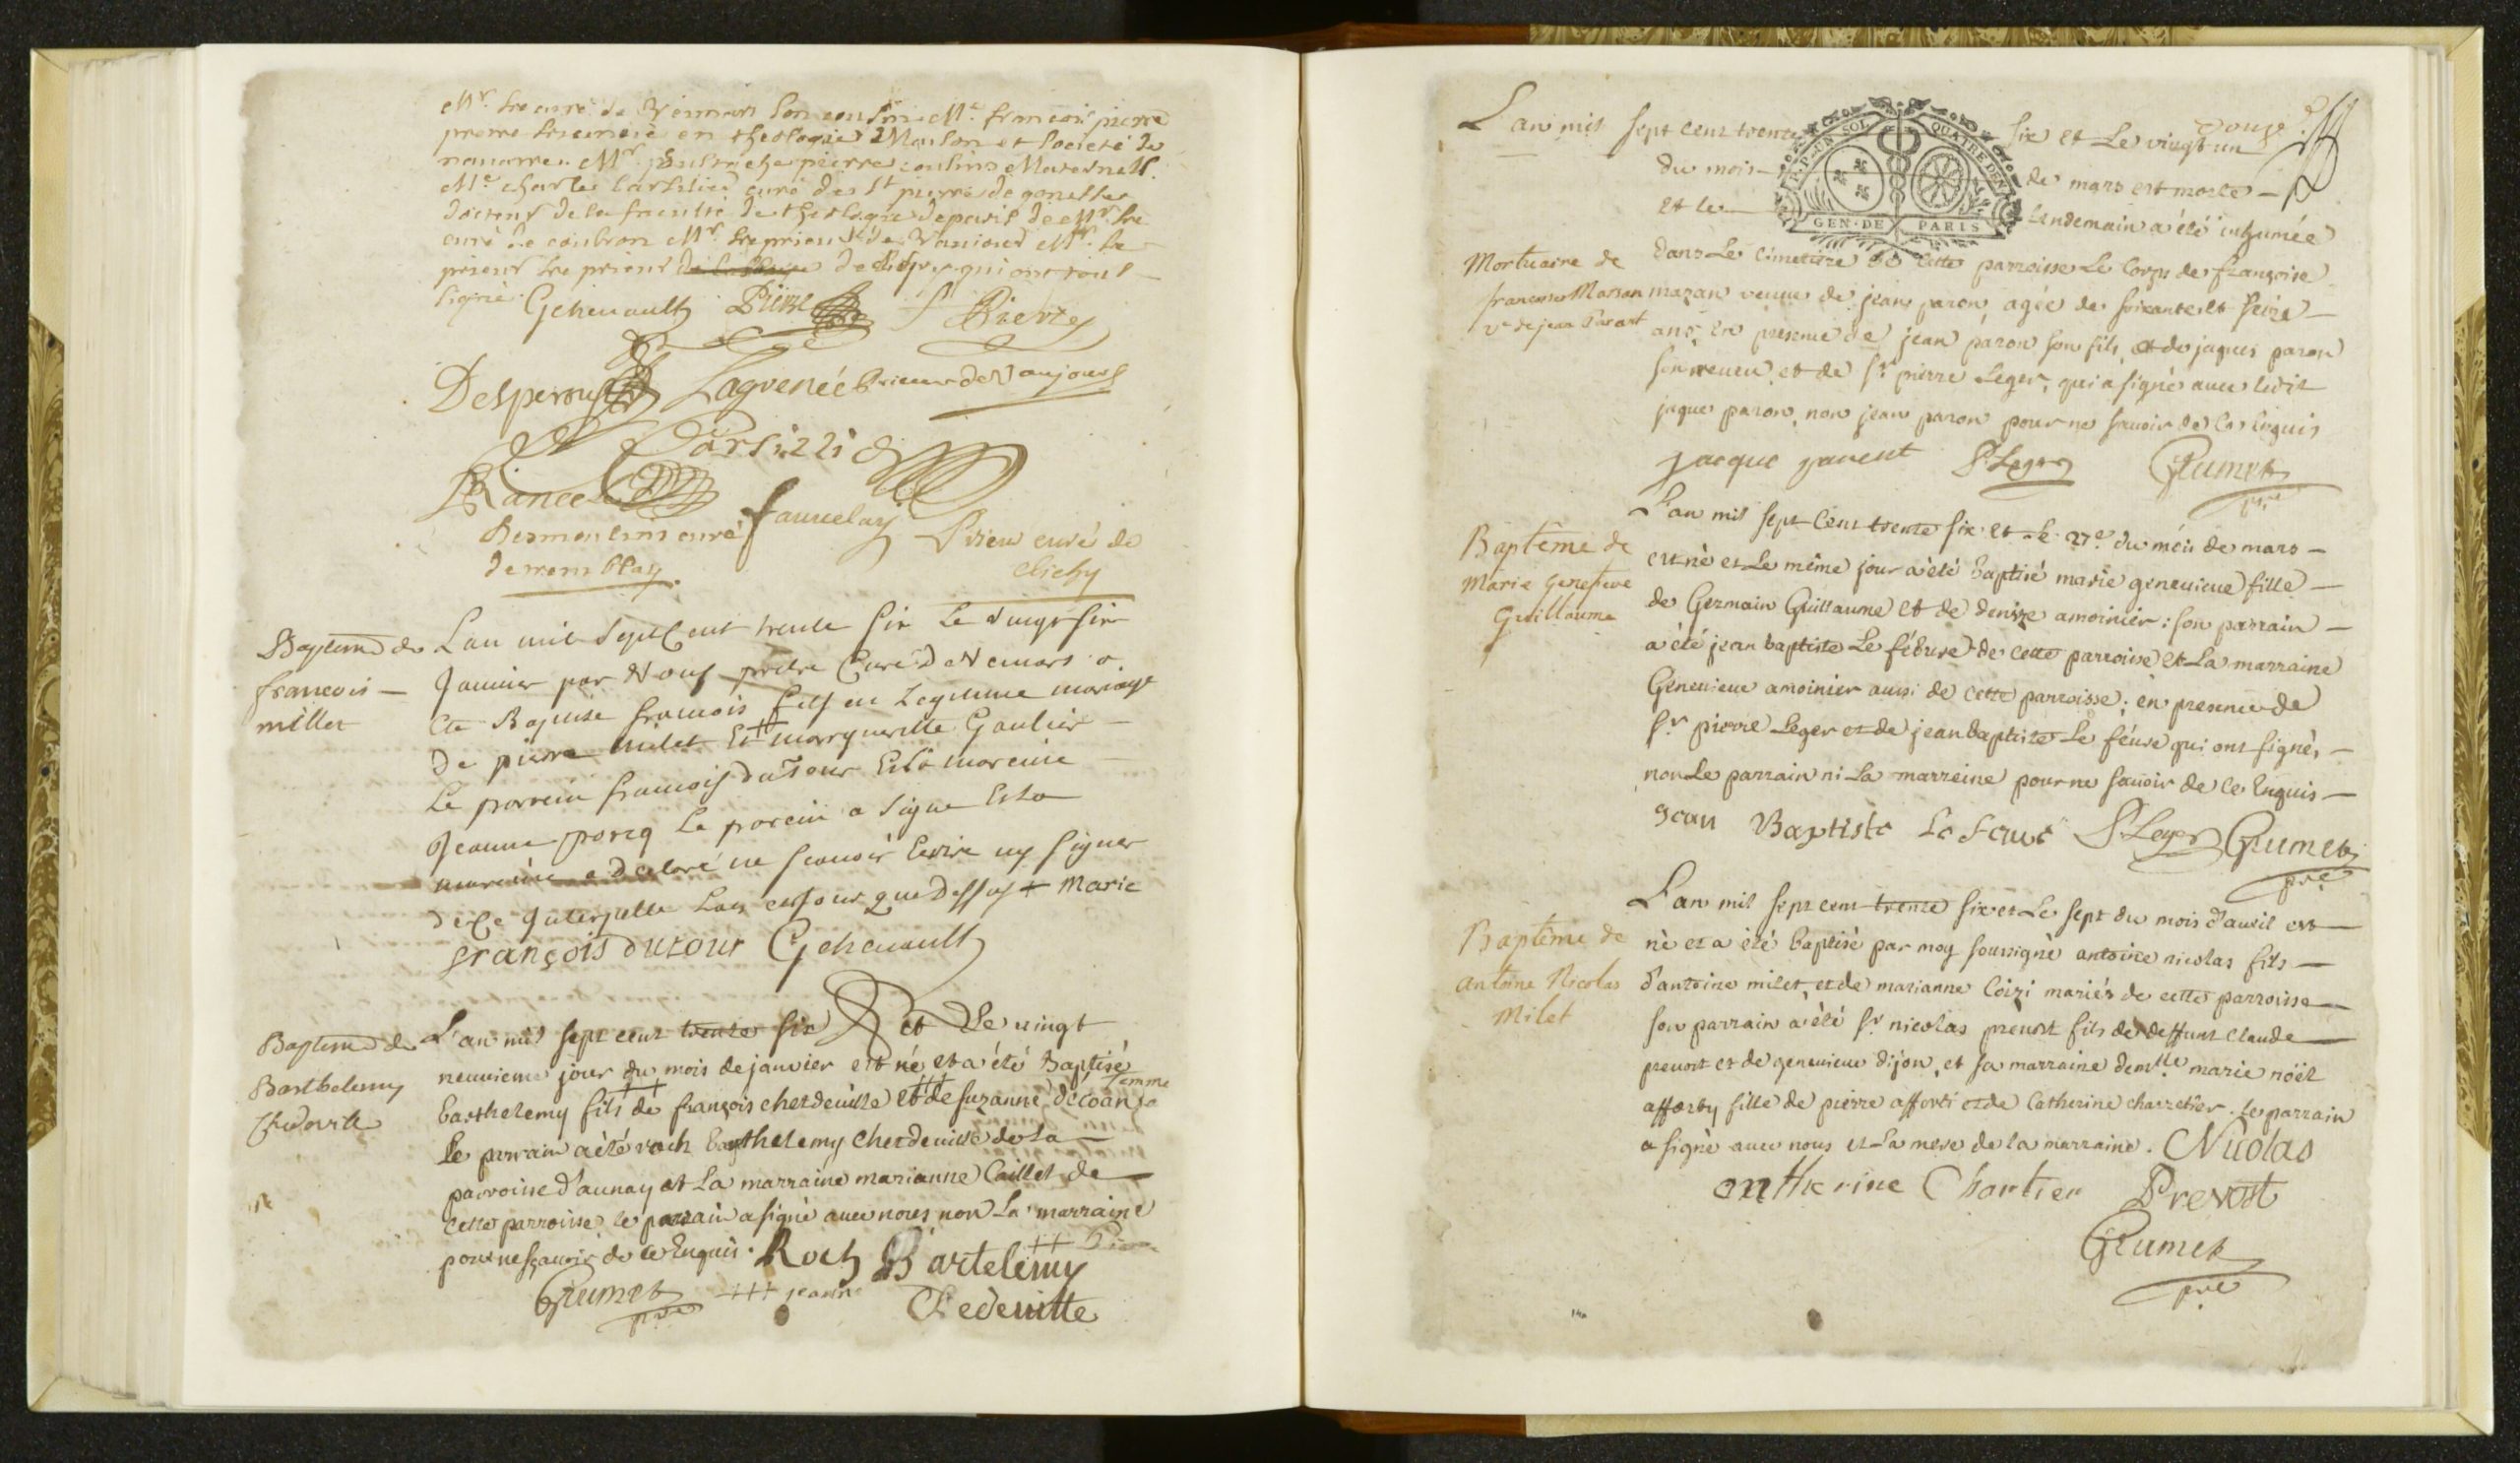 Mr. Le curé de Vemars Son cousin Me. françois pierre
prestre licencié en theologie Maison et Societé de
navarre Mr. pierre cousins Maternels.
Me. charles curé de St pierre de gonesse
docteur de la faculté de theologie de paris Mr. Le
curé de coubron Mr. Le prieur de Vaujours Mr. Le
prieur Le prieur de qui ont tous
signé. Gehenault Pierre Pierre
Desperou Lagrenée prieur de Vaujours
Parsilli
Rancé
faucelay
Desmoulins curé
de tremblay
Prieur curé de
clichy
Baptesme de
francois
millet
L'an mile Sept Cent trente Six Le vingt six
Janvier par Nous prestre Curé de Vemars a
Ete Baptise francois fils en Legitime mariage
de pierre milet Et ++ marguerille Gautier
Le parein francois duTour Et la mareine
Jeanne porcq Le parein a Signe Et la
mareine a declaré ne scavoir Ecrire ny signer
de Ce Interpelle Lan et Jour que Dessus + Marie
françois dutour Gehenault
Baptesme de
Barthelemy
Chedeville
L'an mil sept cent trente six et Le vingt
neuvieme jour du mois de janvier est né et a été Baptisé
barthelemy fils ++ de françois chedeuille +++ et de suzanne décoan sa femme
Le parrain a été roch barthelemy chedeuille de la
parroisse d'aunay et La marraine marianne Caillet de
cette parroisse, le parrain a signé avec nous, non La marraine
pour ne sçavoir de ce Enquis. Roch Bartelemy
++ Pierre
Grumet pre +++ jeanne Chedeuille
L'an mil sept cent trente six et Le vingt un douze
du mois de mars est morte
et le lendemain a été inhumée
F.P. UN SOL QUATRE DEN
GEN. DE PARIS
Mortuaire de
francoise Mazan
ve de jean Parant
dans Le Cimetiere de cette parroisse Le Corps de françoise
mazan veuue de jean paron, agée de soixante et seize
ans, en presence de jean paron son fils, et de jaques paron
son neveu, et de Sr. pierre Leger, qui a signé avec ledit
jaque paron, non jean paron pour ne sauoir de ce enquis
jacque parent P. Leger Grumet
pre
Baptême de
Marie Genefieve
Guillaume
L'an mil sept cent trente six et le 27e du mois de mars
est né et Le même jour a été baptisé marie geneuieue fille
de Germain Guillaume et de denise amoinier: son parrain
a été jean baptiste Le fébure de cette parroisse et La marraine
Geneuieue amoinier aussi de cette parroisse; en presence de
Sr pierre Leger et de jean baptiste Le féure qui ont signés,
non le parrain ni La marreine pour ne sauoir de ce Enquis
Jean Baptiste Le Feure P. Leger Grumet
pre
Baptême de
Antoine Nicolas
Milet
L'an mil sept cent trente six et Le sept du mois d'auril est
né et a été baptisé par moy soussigné antoine nicolas fils
d'antoine milet, et de marianne Coizi mariés de cette parroisse
son parrain a été Sr nicolas preuost fils de deffunt Claude
preuost et de geneuieue dijon, et sa marraine demlle marie noël
afforty fille de pierre afforti et de Catherine charretier. Le parrain
a signé avec nous et La mere de la marraine. Nicolas
Catherine Chartier Prevost
Grumet
pre